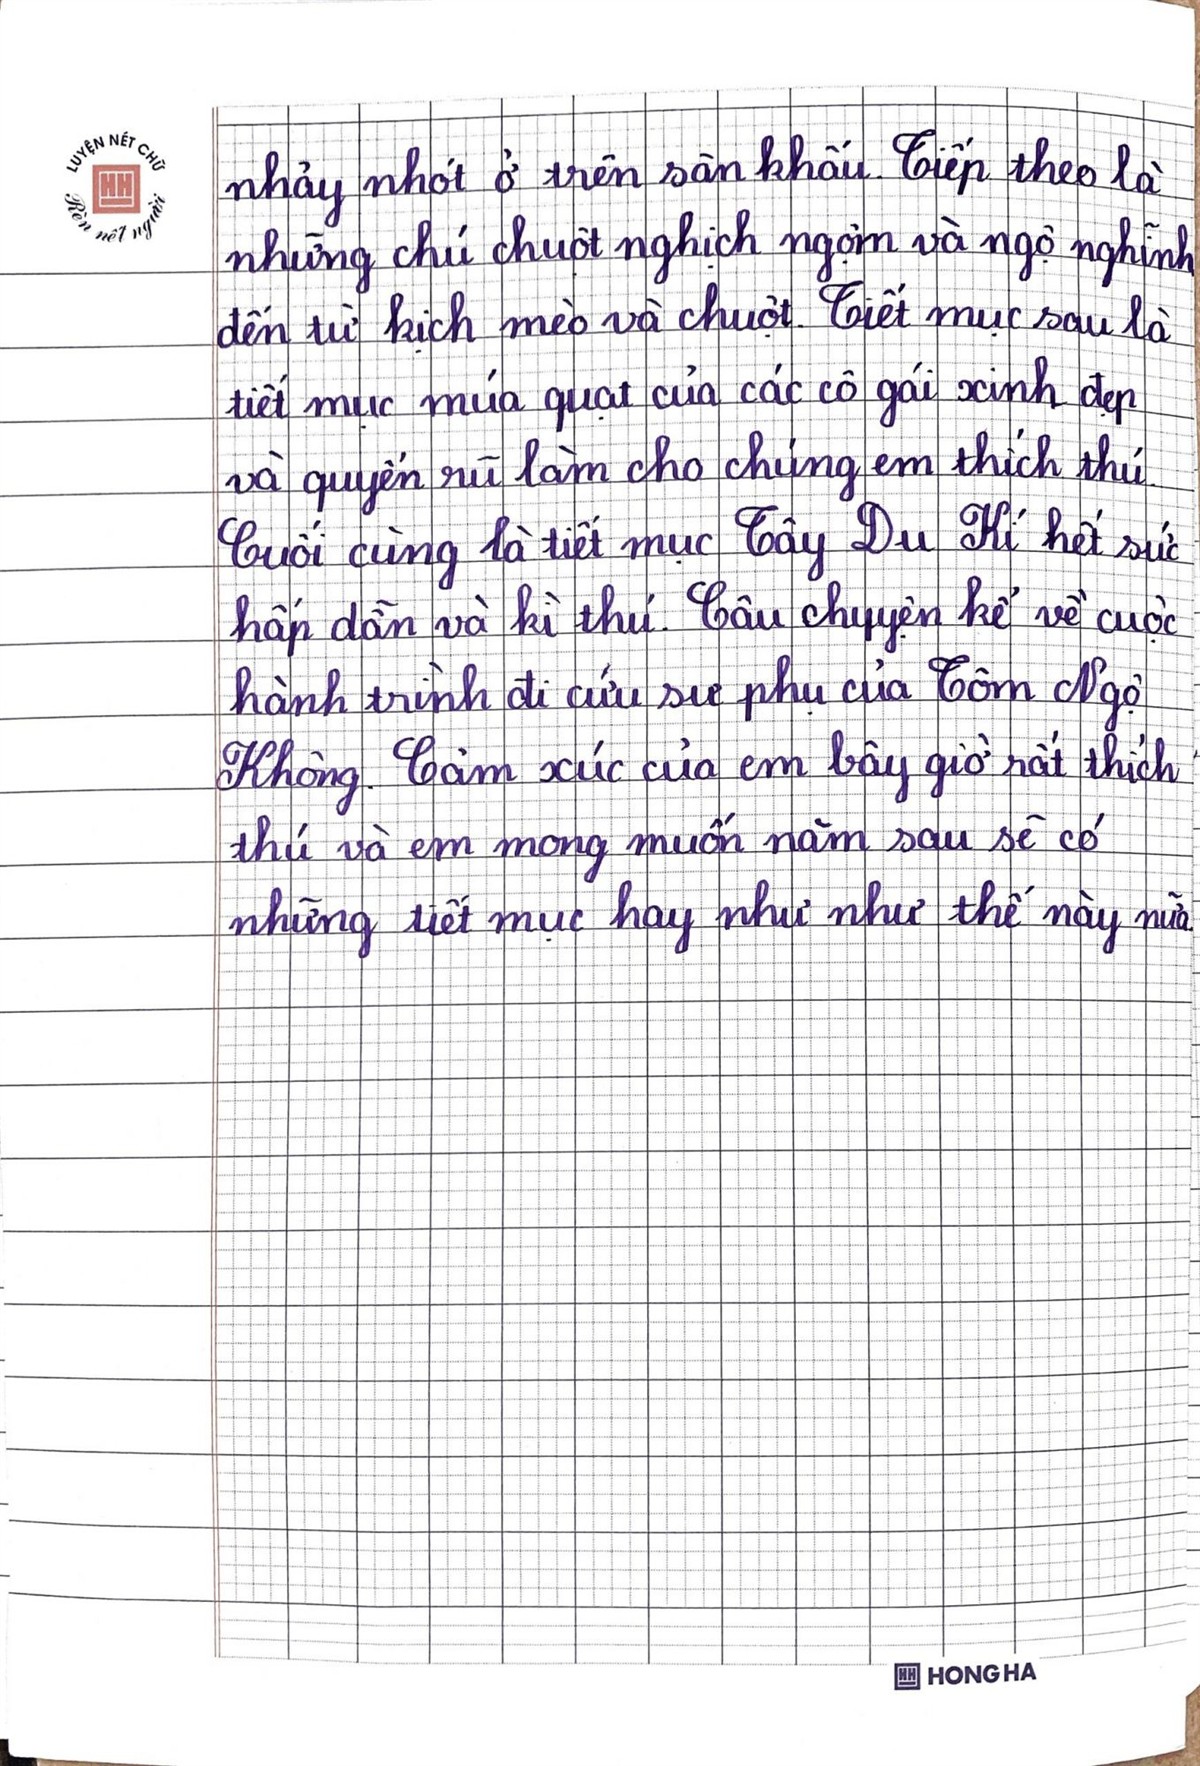 LUYỆN NÉT CHỮ
Rèn nết người
nhảy nhót ở trên sân khấu. Tiếp theo là
những chú chuột nghịch ngợm và ngộ nghĩnh
đến từ kịch mèo và chuột. Tiết mục sau là
tiết mục múa quạt của các cô gái xinh đẹp
và quyến rũ làm cho chúng em thích thú.
Cuối cùng là tiết mục Tây Du Kí hết sức
hấp dẫn và kì thú. Câu chuyện kể về cuộc
hành trình đi cứu sư phụ của Tôm Ngộ
Không. Cảm xúc của em bây giờ rất thích
thú và em mong muốn năm sau sẽ có
những tiết mục hay như như thế này nữa.
HONG HA